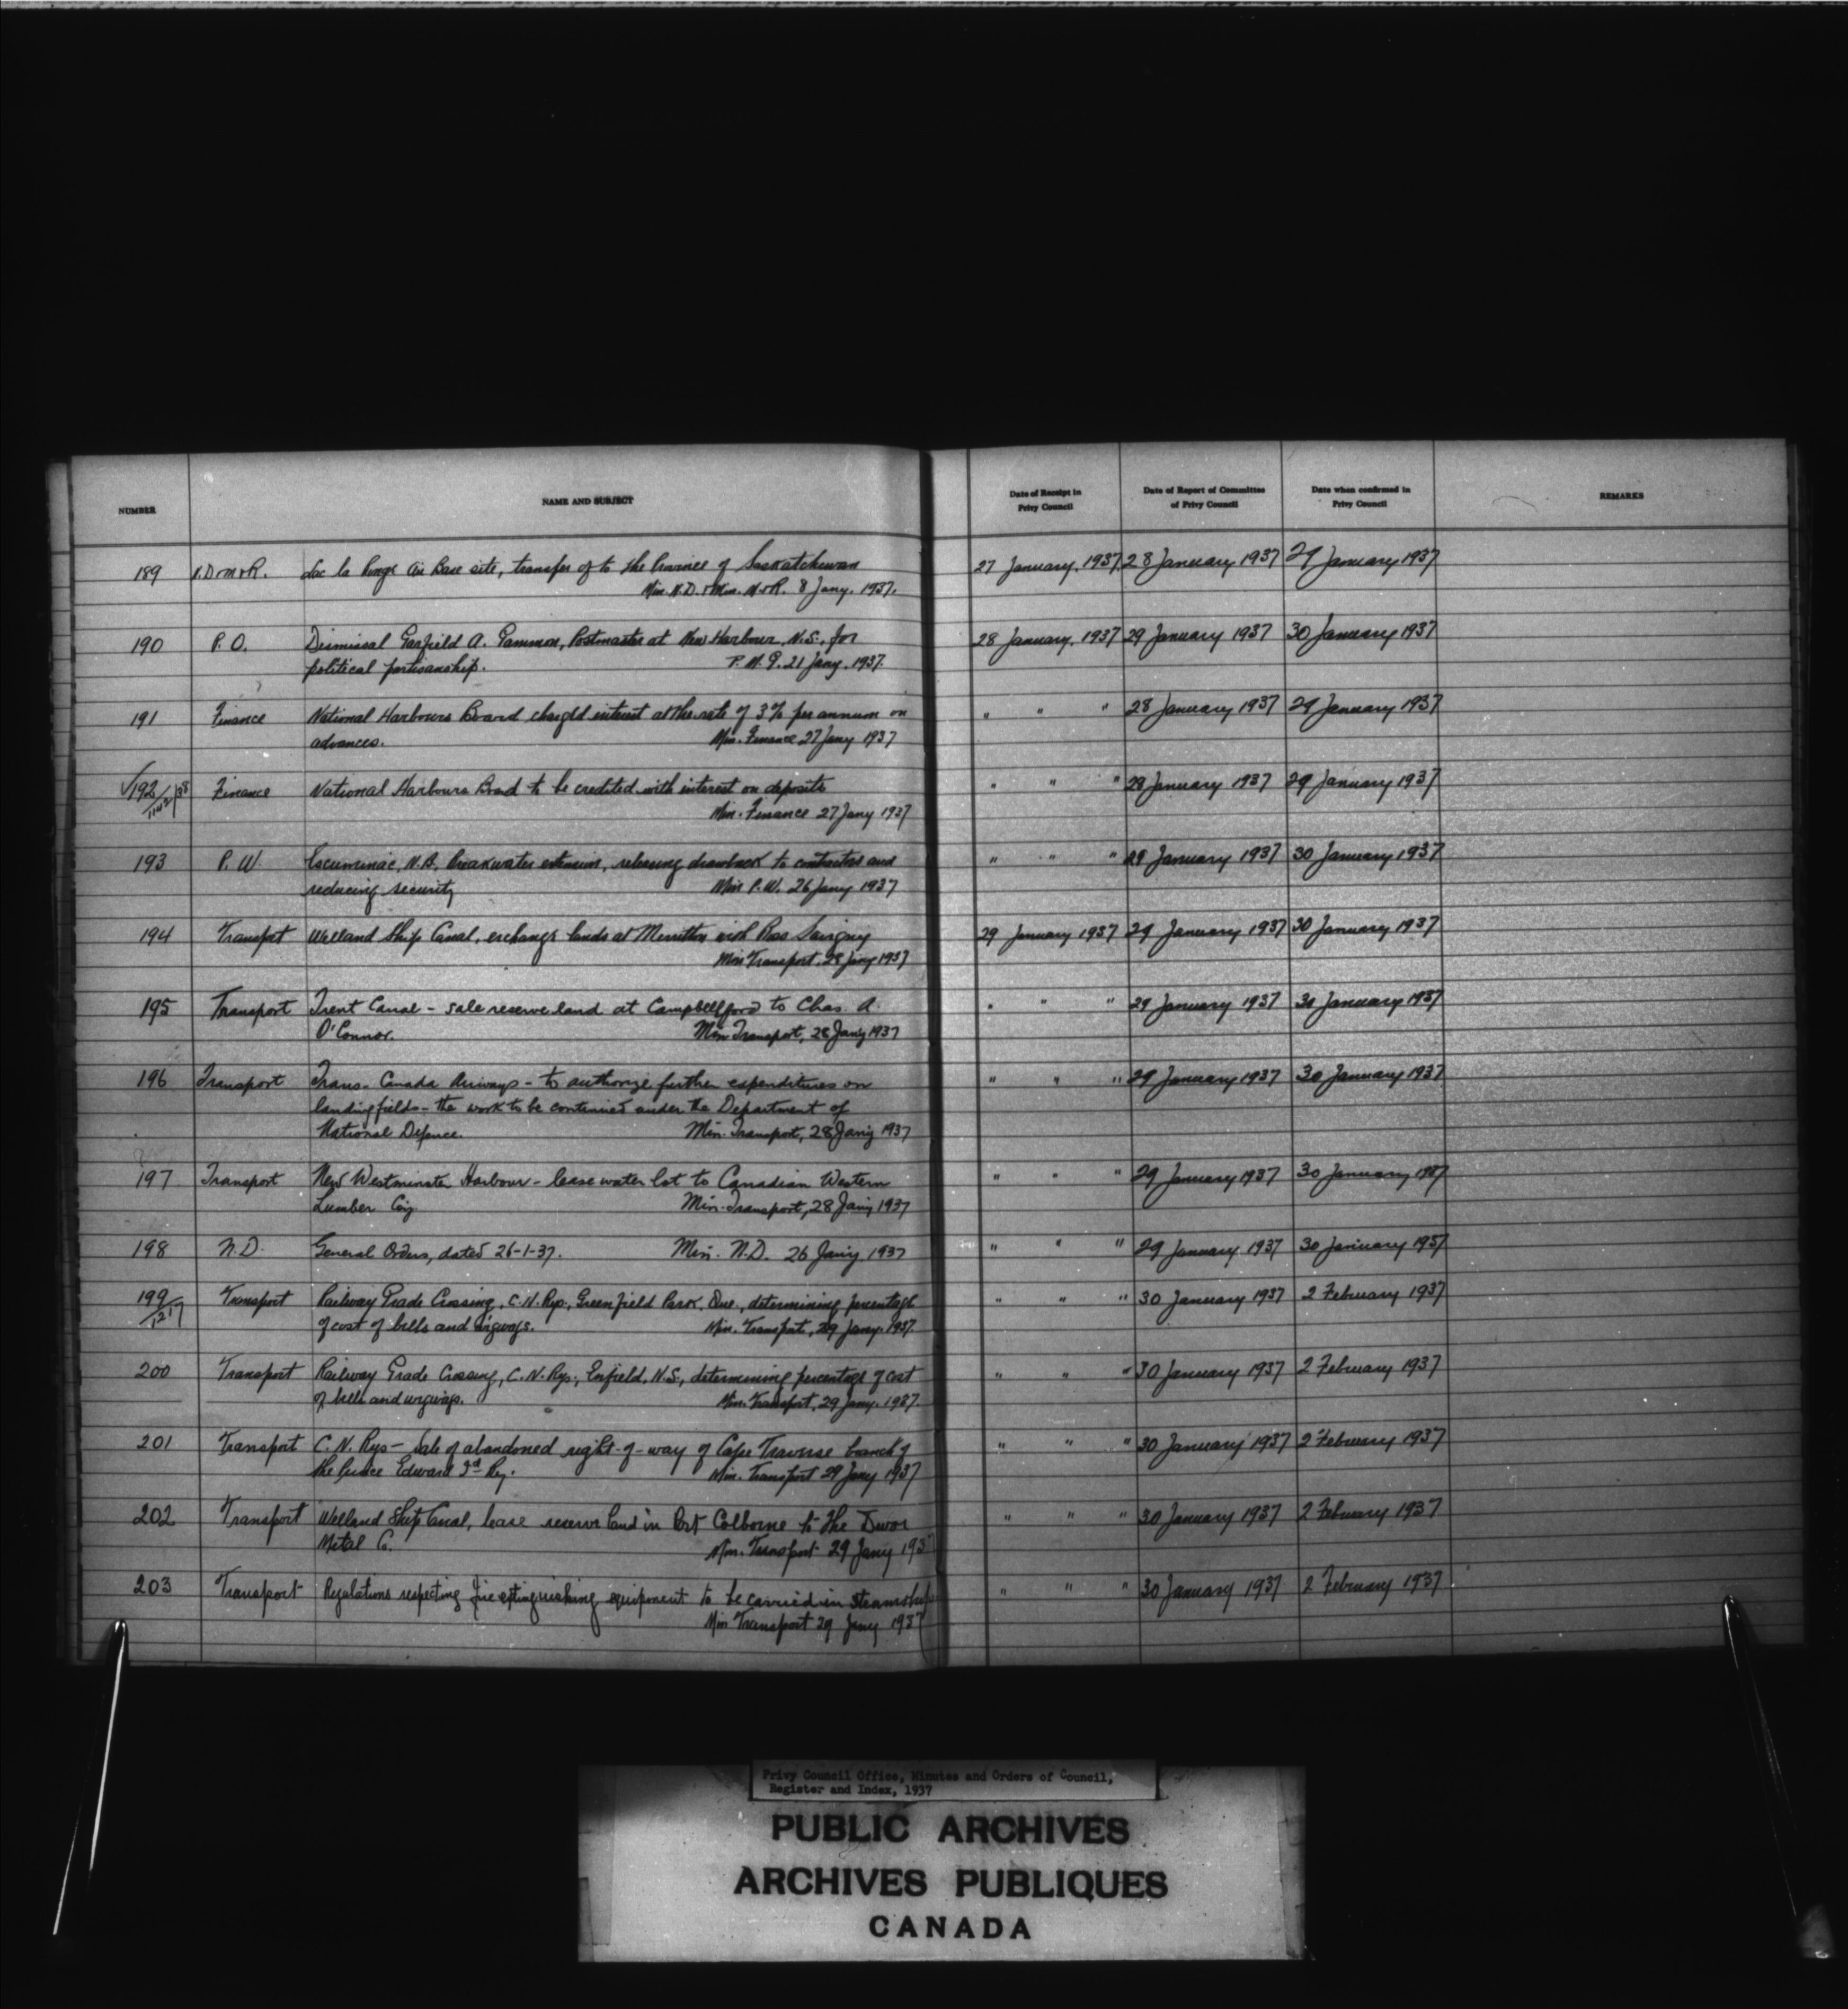 NUMBER NAME AND SUBJECT Date of Receipt in Privy Council Date of Report of Committee of Privy Council Date when confirmed in Privy Council REMARKS
189 Lac la Ronge Air Base site, transfer of to the Province of Saskatchewan 27 January. 1937 28 January 1937 29 January 1937
Min. N.D. & Min. M&R. 8 Jany. 1937.
190 P. O. Dismissal Garfield A. Gammon, Postmaster at New Harbour, N.S., for 28 January. 1937 29 January 1937 30 January 1937
political partisanship. P.M.G. 21 Jany. 1937.
191 Finance National Harbours Board charged interest at the rate of 3% per annum on " " " 28 January 1937 29 January 1937
advances. Min. Finance 27 Jany 1937
√192 Finance National Harbours Board to be credited with interest on deposits " " " 28 January 1937 29 January 1937
Min. Finance 27 Jany 1937
193 P. W. Escuminac, N.B. breakwater extension, releasing drawback to contractors and " " " 29 January 1937 30 January 1937
reducing security Min P.W. 26 Jany 1937
194 Transport Welland Ship Canal, exchange lands at Merritton with Ross 29 January 1937 29 January 1937 30 January 1937
Min Transport, 28 Jany 1937
195 Transport Trent Canal - sale reserve land at Campbellford to Chas. A. " " " 29 January 1937 30 January 1937
O'Connor. Min Transport, 28 Jany 1937
196 Transport Trans-Canada Airways - to authorize further expenditures on " " " 29 January 1937 30 January 1937
landing fields - the work to be continued under the Department of
National Defence. Min. Transport, 28 Jany 1937
197 Transport New Westminster Harbour - lease water lot to Canadian Western " " " 29 January 1937 30 January 1937
Lumber Coy. Min. Transport, 28 Jany 1937
198 N.D. General Orders, dated 26-1-37. Min. N.D. 26 Jany 1937 " " " 29 January 1937 30 January 1937
199 Transport Railway Grade Crossing, C.N.Rys., Greenfield Park, Que., determining percentage " " " 30 January 1937 2 February 1937
1217 of cost of bells and wigwags. Min. Transport, 29 Jany. 1937.
200 Transport Railway Grade Crossing, C.N.Rys., Enfield, N.S., determining percentage of cost " " " 30 January 1937 2 February 1937
of bells and wigwags. Min. Transport, 29 Jany. 1937.
201 Transport C.N. Rys - Sale of abandoned right-of-way of Cape Traverse branch of " " " 30 January 1937 2 February 1937
the Prince Edward Isd Ry. Min. Transport 29 Jany 1937
202 Transport Welland Ship Canal, lease reserve land in Port Colborne to the Dwor " " " 30 January 1937 2 February 1937
Metal Co. Min. Transport 29 Jany 193
203 Transport Regulations respecting fire extinguishing equipment to be carried in steamships " " " 30 January 1937 2 February 1937
Min Transport 29 Jany 1937
Privy Council Office, Minutes and Orders of Council,
Register and Index, 1937
PUBLIC ARCHIVES
ARCHIVES PUBLIQUES
CANADA